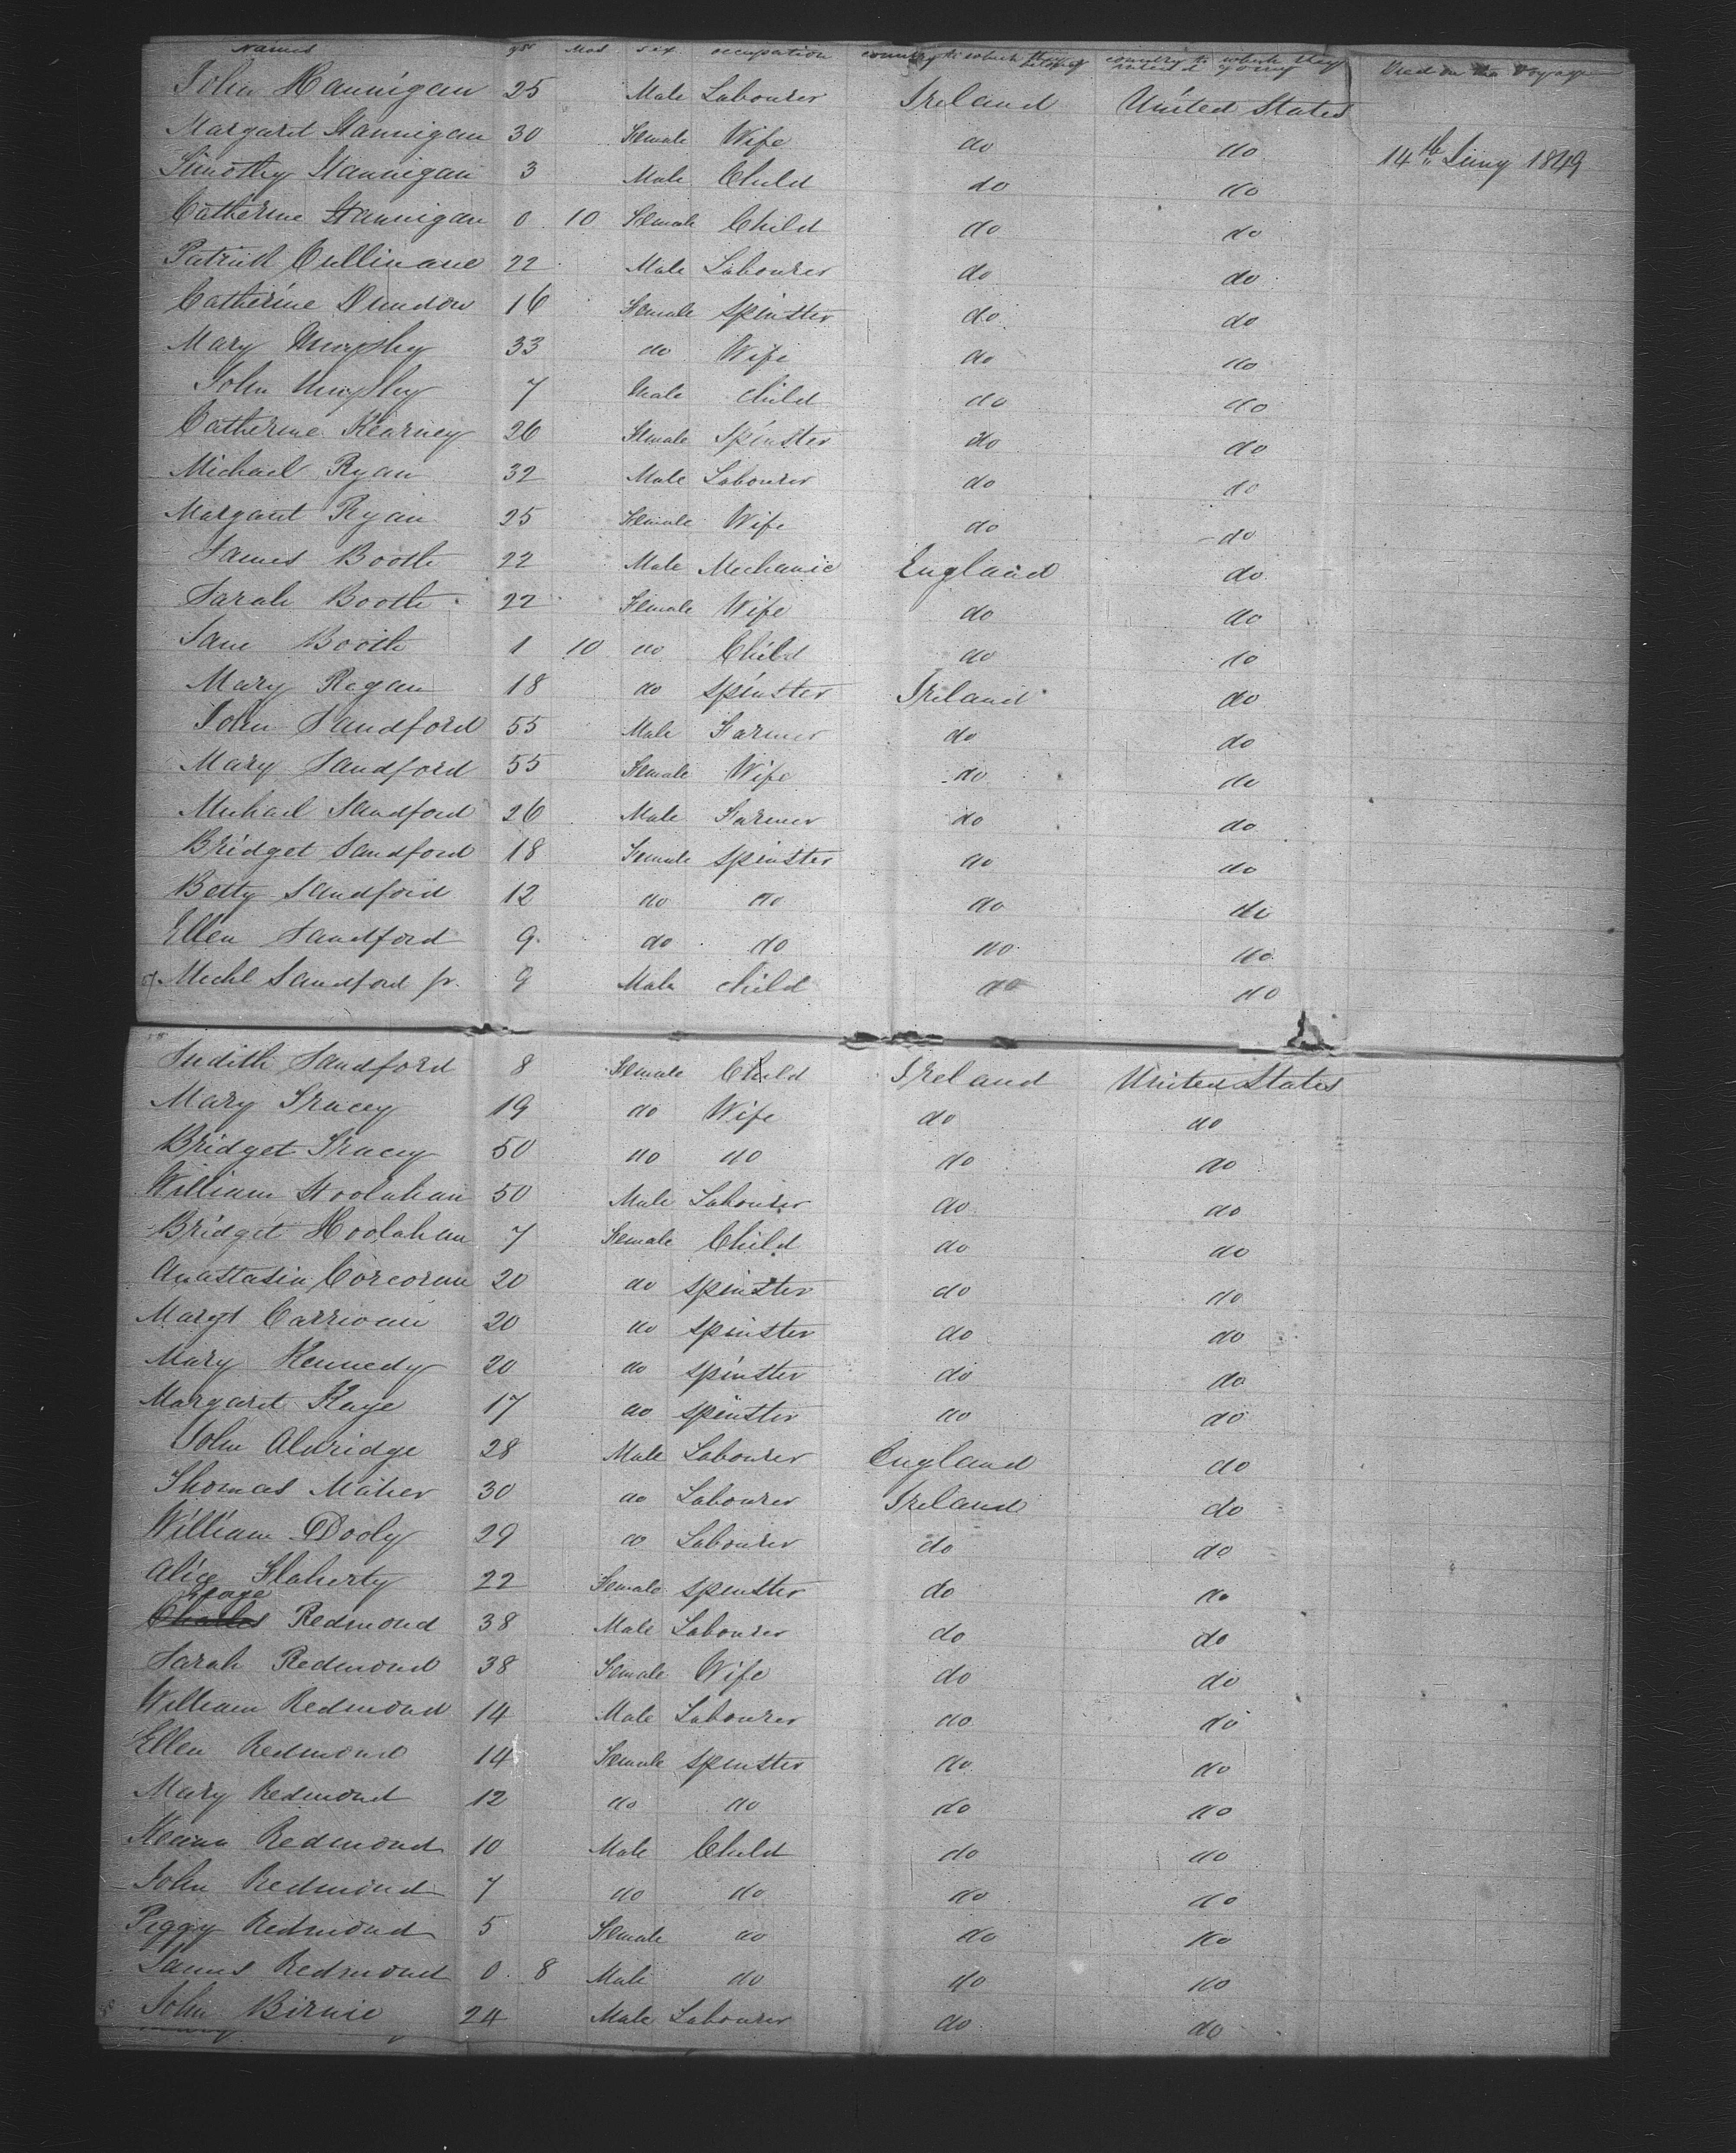 Names yrs Mos sex occupation country to which they belong country to which they intend going Died on the Voyage
John Hannigan 25 Male Labourer Ireland United States
Margaret Hannigan 30 Female Wife do do 14th 1849
Timothy Hannigan 3 Male Child do do
Catherine Hannigan 0 10 Female Child do do
Patrick Cullinane 22 Male Labourer do do
Catherine Dundon 16 Female Spinster do do
Mary Murphy 33 do Wife do do
John Murphy 7 Male child do do
Catherine Kearney 26 Female Spinster do do
Michael Ryan 32 Male Labourer do do
Margaret Ryan 25 Female Wife do do
James Booth 22 Male Mechanic England do
Sarah Booth 22 Female Wife do do
Jane Booth 1 10 do Child do do
Mary Regan 18 do Spinster Ireland do
John Sandford 55 Male Farmer do do
Mary Sandford 55 Female Wife do do
Michael Sandford 26 Male Farmer do do
Bridget Sandford 18 Female Spinster do do
Betty Sandford 12 do do do do
Ellen Sandford 9 do do do do
Michl Sandford jr. 9 Male child do do
Judith Sandford 8 Female Child Ireland United States
Mary Tracey 19 do Wife do do
Bridget Tracey 50 do do do do
William Hoolahan 50 Male Labourer do do
Bridget Hoolahan 7 Female Child do do
Anastasia Corcoran 20 do spinster do do
Margt 20 do spinster do do
Mary Kennedy 20 do spinster do do
Margaret Kaye 17 do spinster do do
John Aldridge 28 Male Labourer England do
Thomas Maher 30 do Labourer Ireland do
William Dooly 29 do Labourer do do
Alice Flaherty 22 Female spinster do do
George
Charles Redmond 38 Male Labourer do do
Sarah Redmond 38 Female Wife do do
William Redmond 14 Male Labourer do do
Ellen Redmond 14 Female spinster do do
Mary Redmond 12 do do do do
Redmond 10 Male Child do do
John Redmond 7 do do do do
Peggy Redmond 5 Female do do do
James Redmond 0 8 Male do do do
John Birnie 24 Male Labourer do do